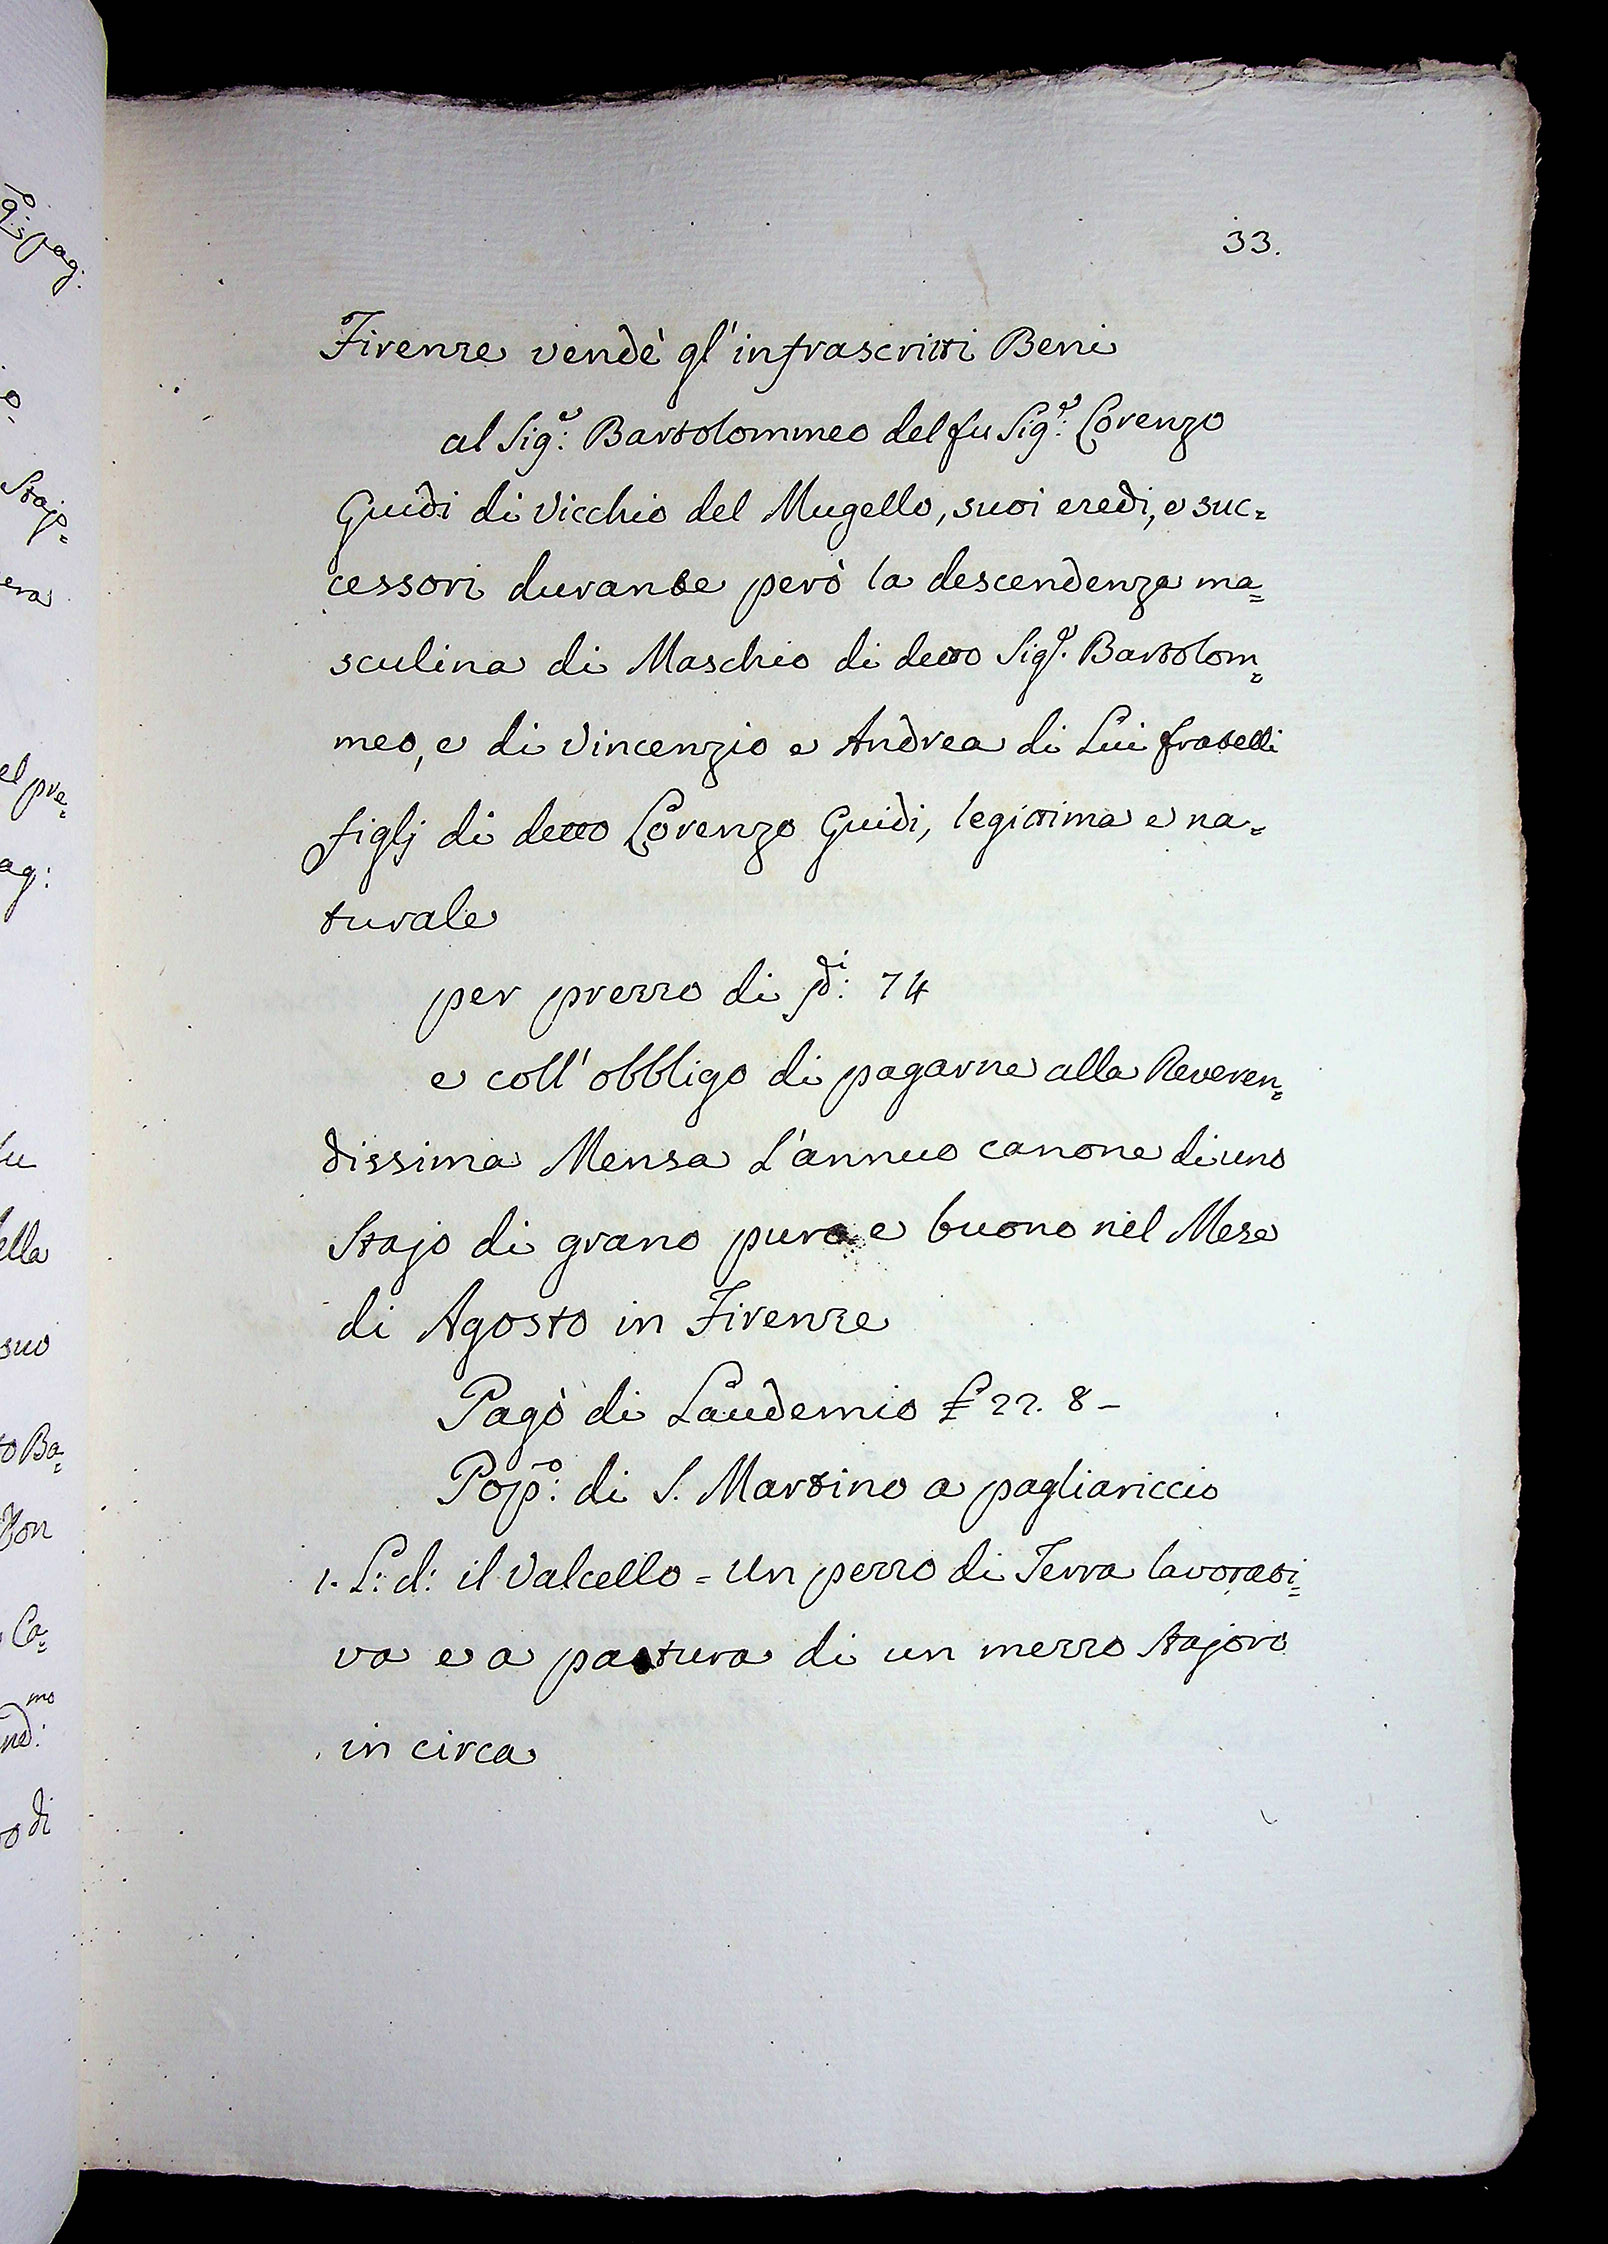 33.
Firenze vendè gl'infrascritti Beni
al Sig.e: Bartolommeo del fu Sig.e: Lorenzo
Guidi di Vicchio del Mugello, suoi eredi, e suc=
cessori durante però la descendenza ma=
sculina di Maschio di detto Sig.e: Bartolom=
meo, e di Vincenzio e Andrea di Lui fratelli
figlj di detto Lorenzo Guidi, legittima e na=
turale
per prezzo di 74
e coll'obbligo di pagarne alla Reveren=
dissima Mensa L'annuo canone di uno
Stajo di grano puro e buono nel Mese
di Agosto in Firenze
Pagò di Laudemio £ 22. 8 -
Pop.o: di S. Martino a pagliariccio
1. L: d: il Valcello = Un pezzo di Terra lavorati=
va e a pastura di un mezzo Stajoro
in circa
pag:
Stajo=
era
el pre=
ag:
ella
suo
to Ba=
Ca=
di